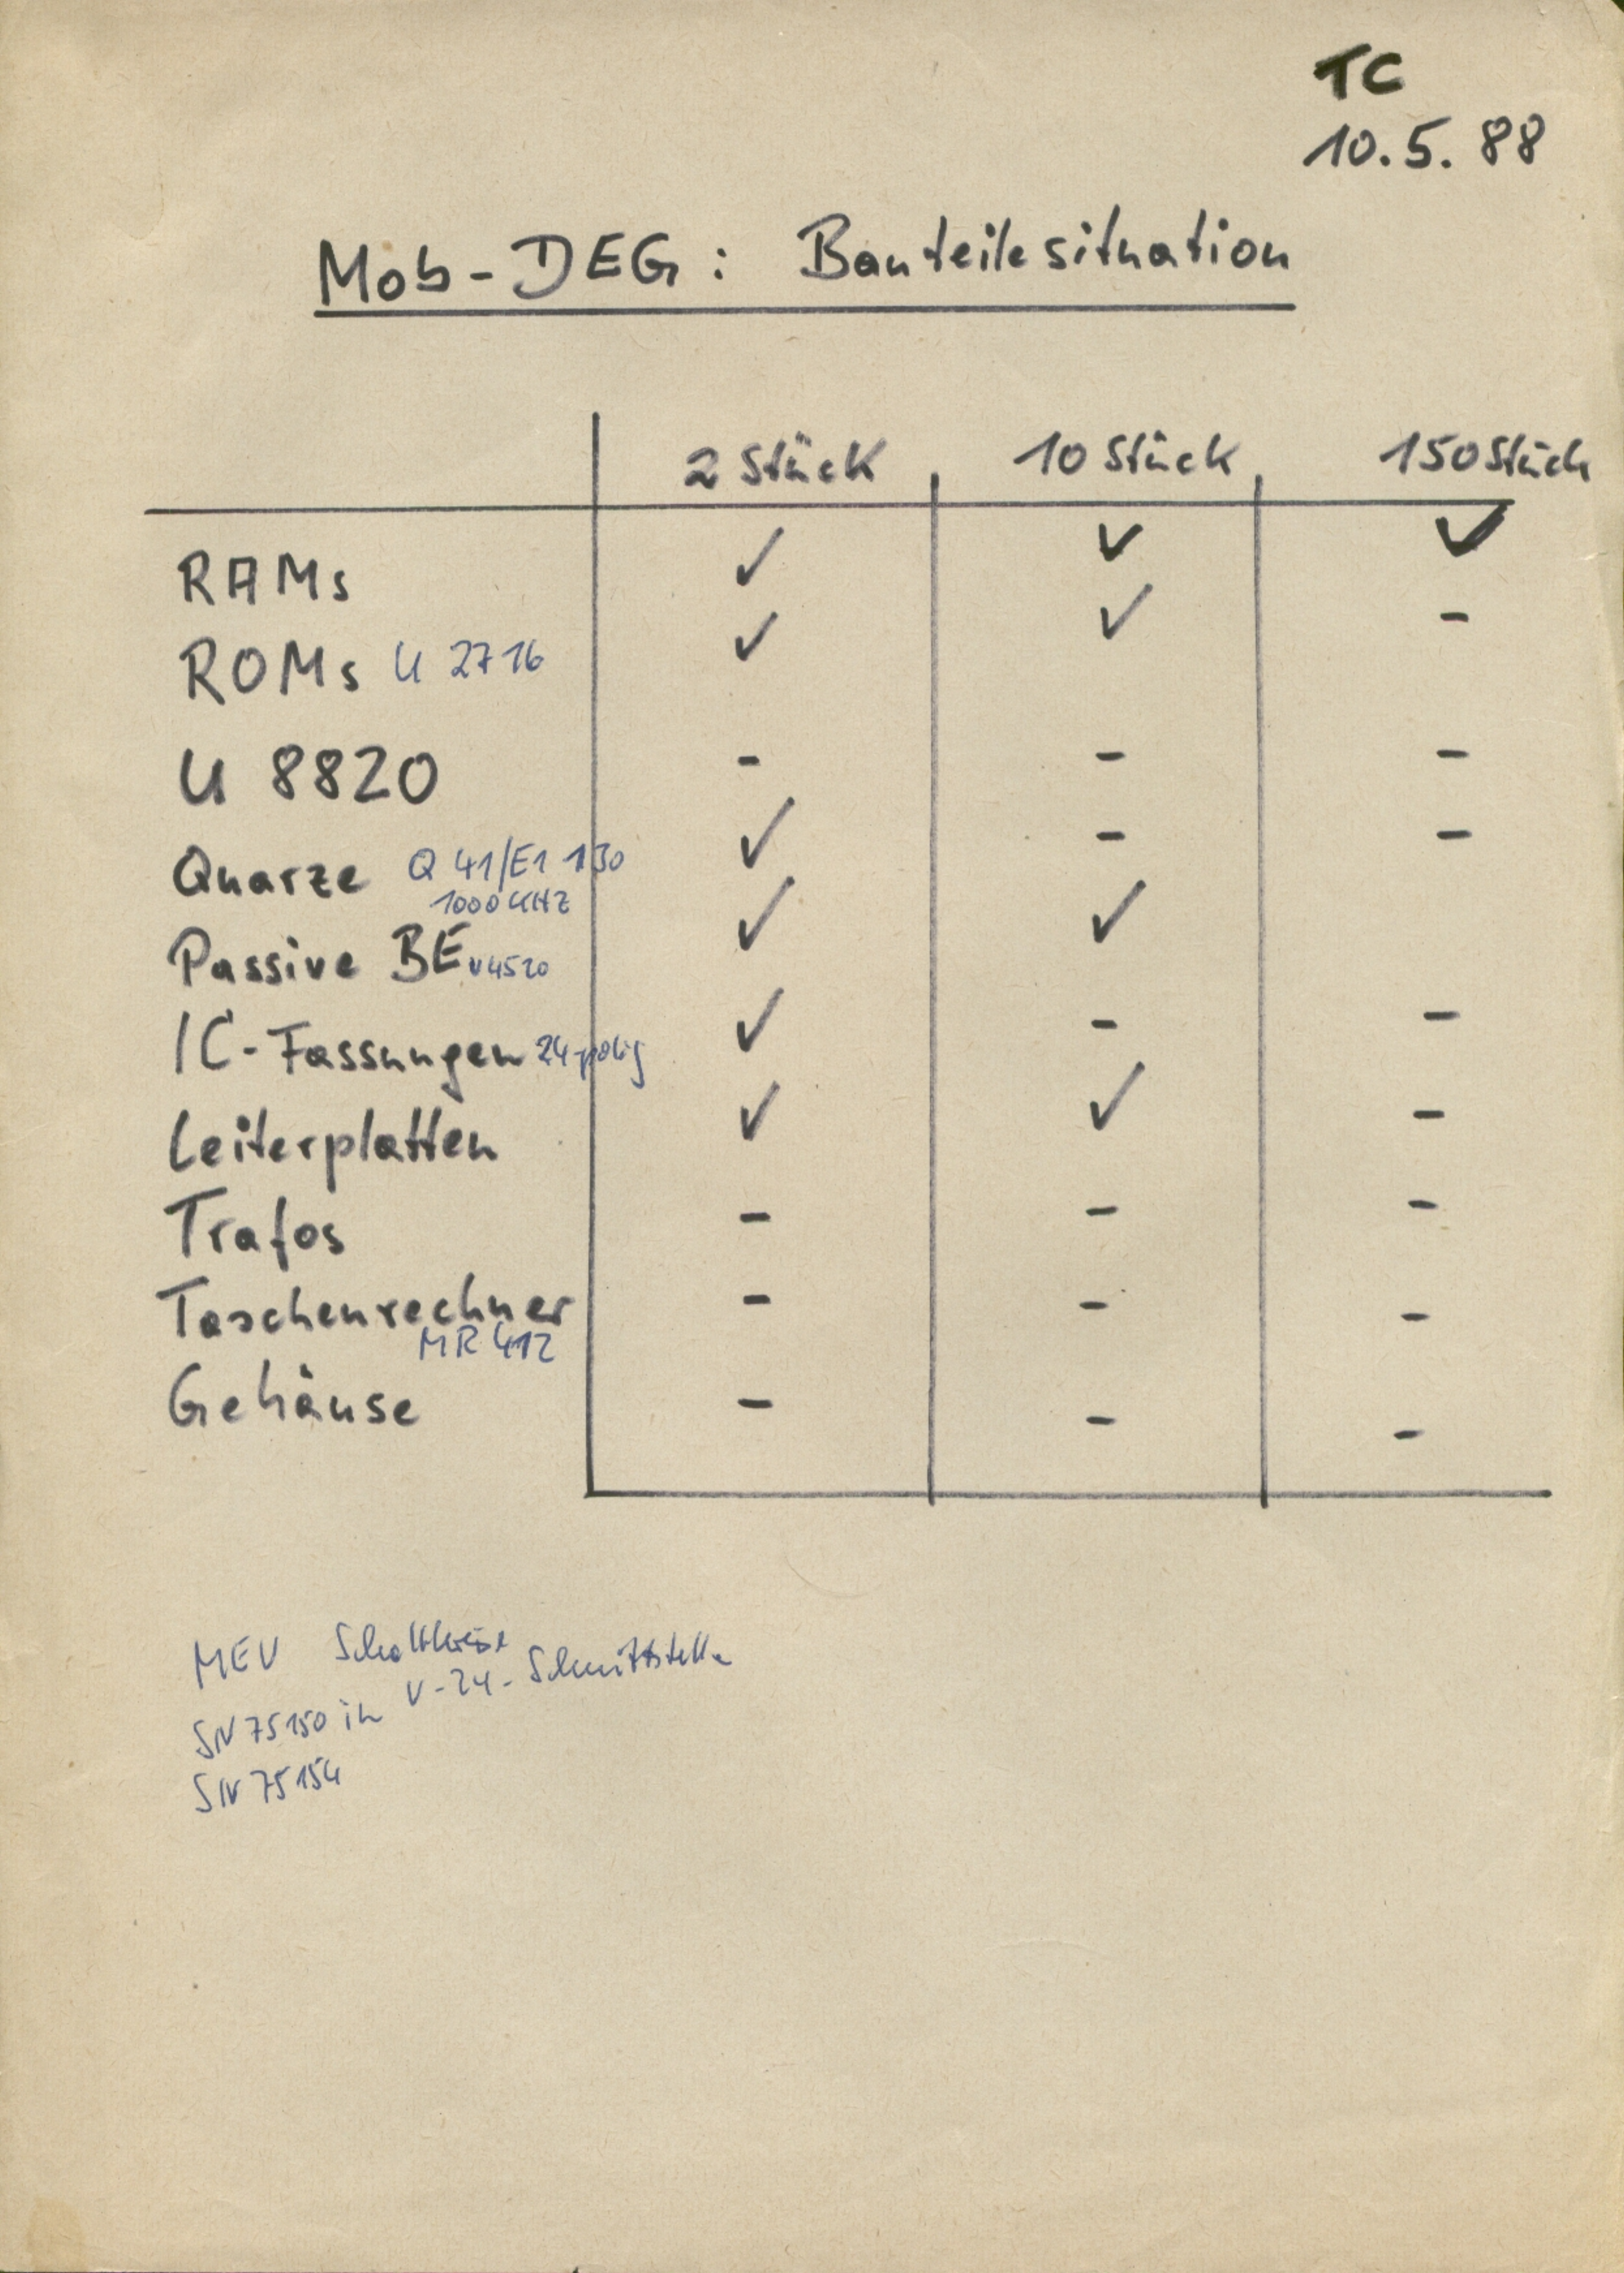 TC
10.5.88
Mob-DEG: Bauteilesituation
2 Stück 10 Stück 150 Stück
RAMs ✓ ✓ ✓
ROMs U 2716 ✓ ✓ -
U 8820 - - -
Quarze Q 41/E1 130 ✓ - -
1000 KHZ
Passive BE V4520 ✓ ✓
IC-Fassungen 24-polig ✓ - -
Leiterplatten ✓ ✓ -
Trafos - - -
Taschenrechner - - -
MR 412
Gehäuse - - -
MEV Schaltkreise
SN 75150 in V-24-Schnittstelle
SN 75154